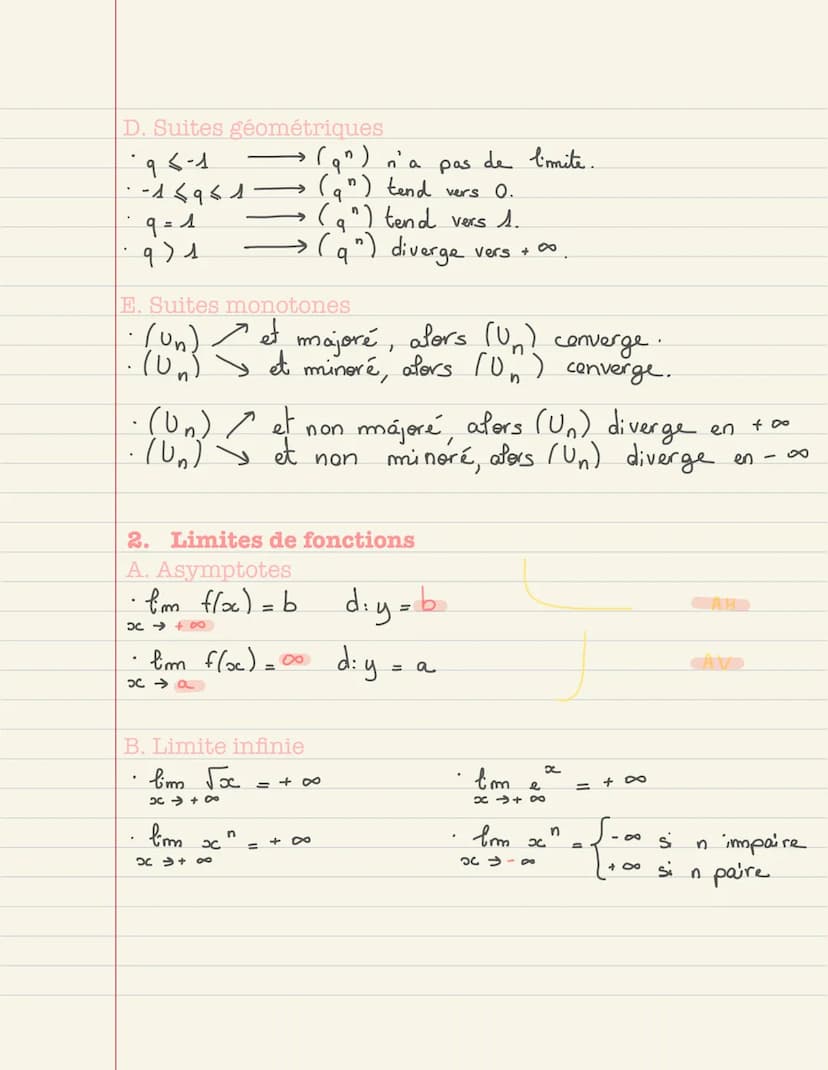 D. Suites géométriques
· q ⩽ -1 ⟶ (qⁿ) n'a pas de limite.
· -1 ⩽ q ⩽ 1 ⟶ (qⁿ) tend vers 0.
· q = 1 ⟶ (qⁿ) tend vers 1.
· q > 1 ⟶ (qⁿ) diverge vers + ∞.
E. Suites monotones
· (Un) ↗ et majoré, alors (Un) converge.
· (Un) ↘ et minoré, alors (Un) converge.
· (Un) ↗ et non majoré, alors (Un) diverge en + ∞
· (Un) ↘ et non minoré, alors (Un) diverge en - ∞
2. Limites de fonctions
A. Asymptotes
· lim f(x) = b d: y = b AH
x → + ∞
· lim f(x) = ∞ d: y = a AV
x → a
B. Limite infinie
· lim √x = + ∞ · lim eˣ = + ∞
x → + ∞ x → + ∞
· lim xⁿ = + ∞ · lim xⁿ = { - ∞ si n impaire
x → + ∞ x → - ∞ + ∞ si n paire